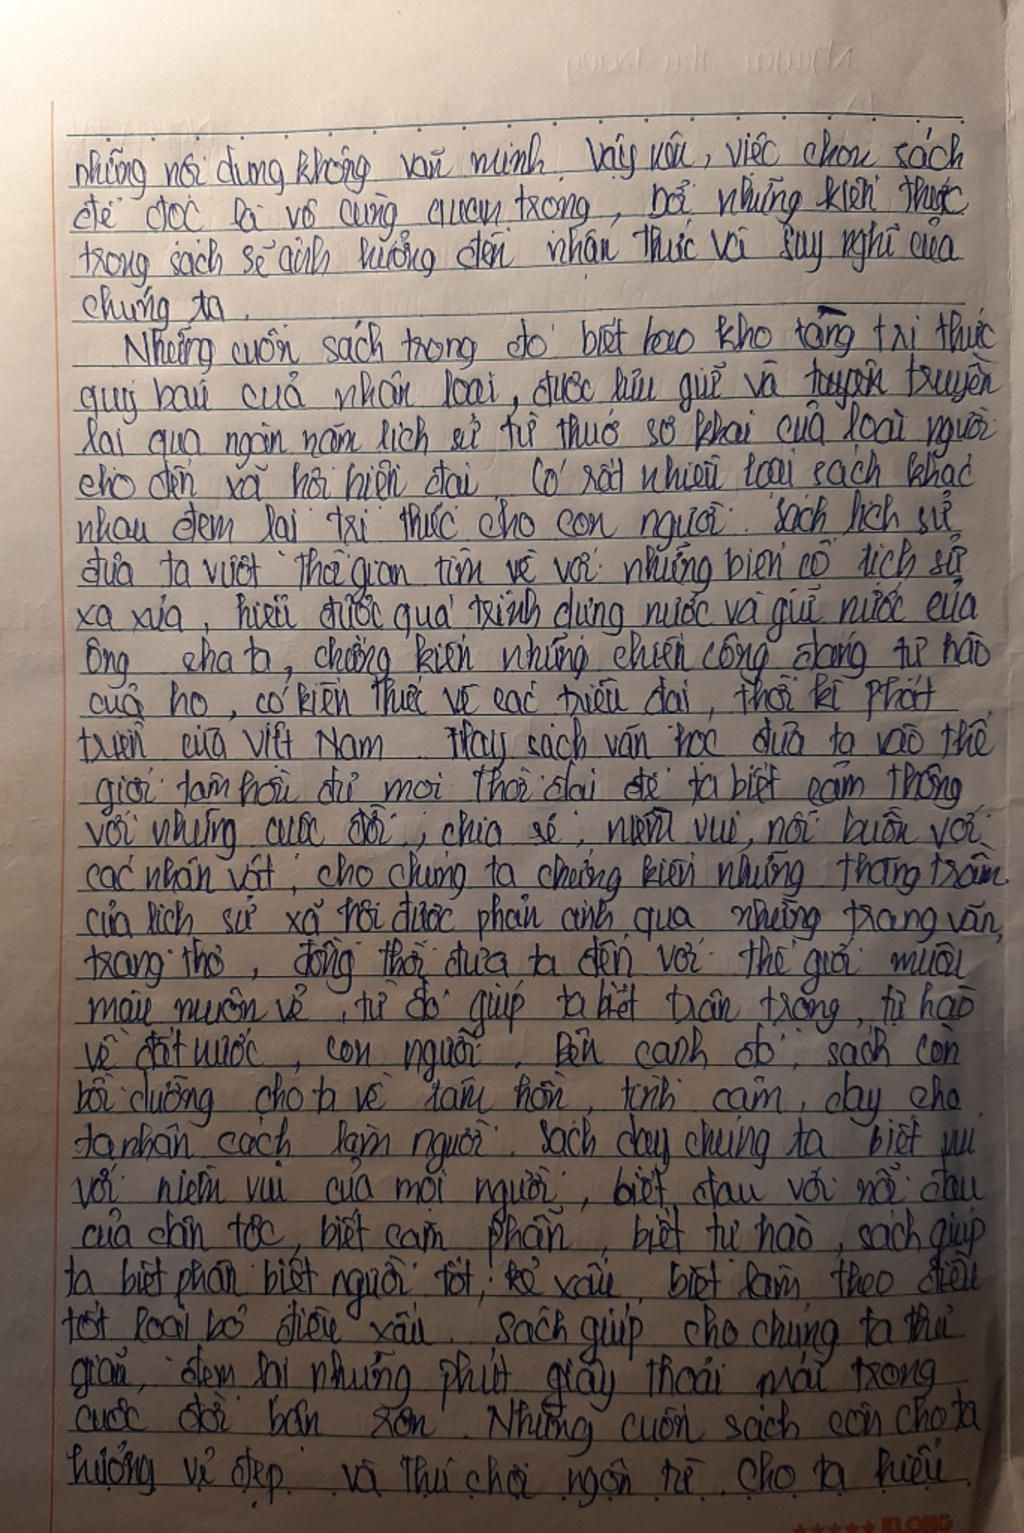 những nội dung không văn minh. Vậy nên, việc chọn sách
để đọc là vô cùng quan trọng, bởi những kiến thức
trong sách sẽ ảnh hưởng đến nhận thức và suy nghĩ của
chúng ta.
Những cuốn sách trong đó biết bao kho tàng tri thức
quý báu của nhân loại, được lưu giữ và truyền
lại qua ngàn năm lịch sử từ thuở sơ khai của loài người
cho đến xã hội hiện đại. Có rất nhiều loại sách khác
nhau đem lại tri thức cho con người. Sách lịch sử
đưa ta vượt thời gian tìm về với những biến cố lịch sử
xa xưa, hiểu được quá trình dựng nước và giữ nước của
ông cha ta, chứng kiến những chiến công đáng tự hào
của họ, có kiến thức về các triều đại, thời kì phát
triển của Việt Nam. Hay sách văn học đưa ta vào thế
giới tâm hồn đủ mọi thời đại để ta biết cảm thông
với những cuộc đời, chia sẻ, niềm vui, nỗi buồn với
các nhân vật, cho chúng ta chứng kiến những thăng trầm
của lịch sử xã hội được phản ánh qua những trang văn,
trang thơ, đồng thời đưa ta đến với thế giới muôn
màu muôn vẻ, từ đó giúp ta biết trân trọng, tự hào
về đất nước, con người. Bên cạnh đó, sách còn
bồi dưỡng cho ta về tâm hồn, tình cảm, dạy cho
ta nhân cách làm người. Sách dạy chúng ta biết vui
với niềm vui của mọi người, biết đau với nỗi đau
của dân tộc, biết căm phẫn, biết tự hào, sách giúp
ta biết phân biệt người tốt, kẻ xấu, biết làm theo điều
tốt loại bỏ điều xấu. Sách giúp cho chúng ta thư
giãn, đem lại những phút giây thoải mái trong
cuộc đời bận rộn. Những cuốn sách còn cho ta
hưởng vẻ đẹp và thú chơi ngôn từ, cho ta hiểu
KLONG